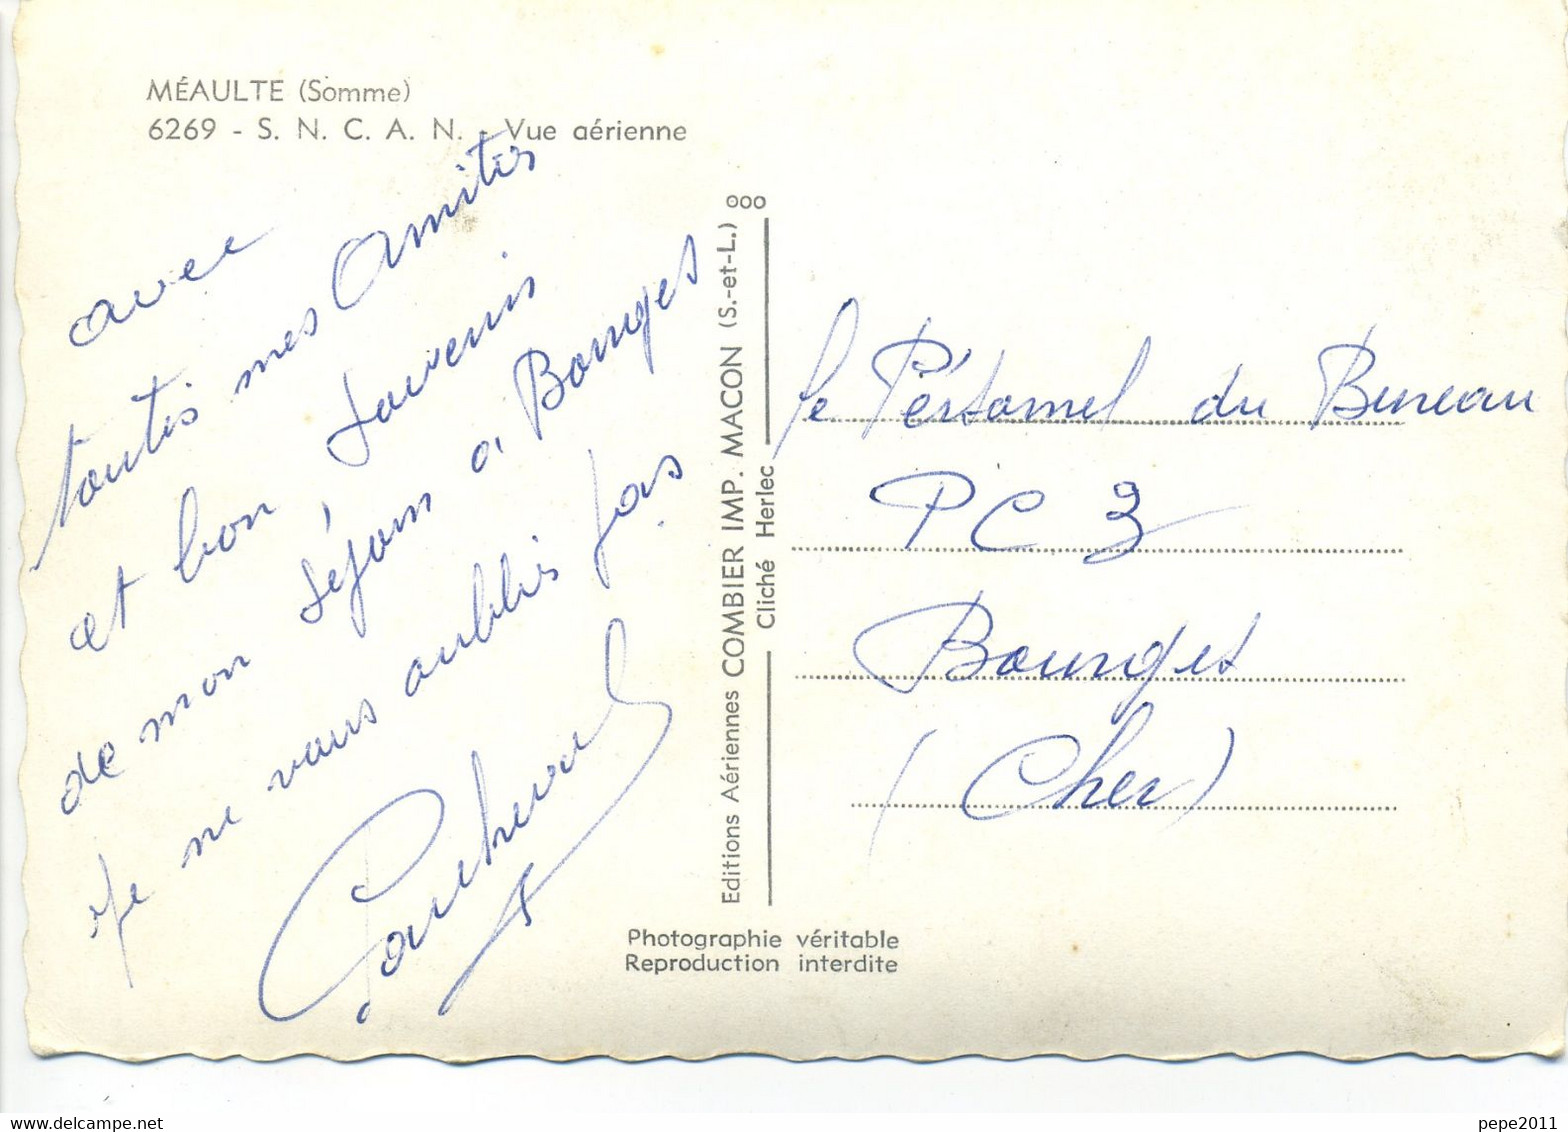 MÉAULTE (Somme)
6269 - S. N. C. A. N. - Vue aérienne
avec
toutes mes Amitiés
et bon souvenir
de mon séjour à Bourges
je ne vous oublies pas
ooo
Editions Aériennes COMBIER IMP. MACON (S.-et-L.)
Cliché Herlec
le Pérsonnel du Bureau
PC 3
Bourges
(Cher)
Photographie véritable
Reproduction interdite
pepe2011